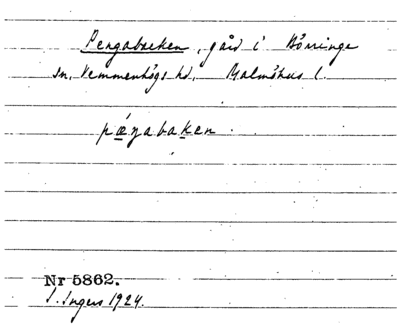 Pengabacken, gård i Börringe
sn, Vemmenhögs hd, Malmöhus l.
pæŋabaken.
Nr 5862.
I. Ingers 1924.